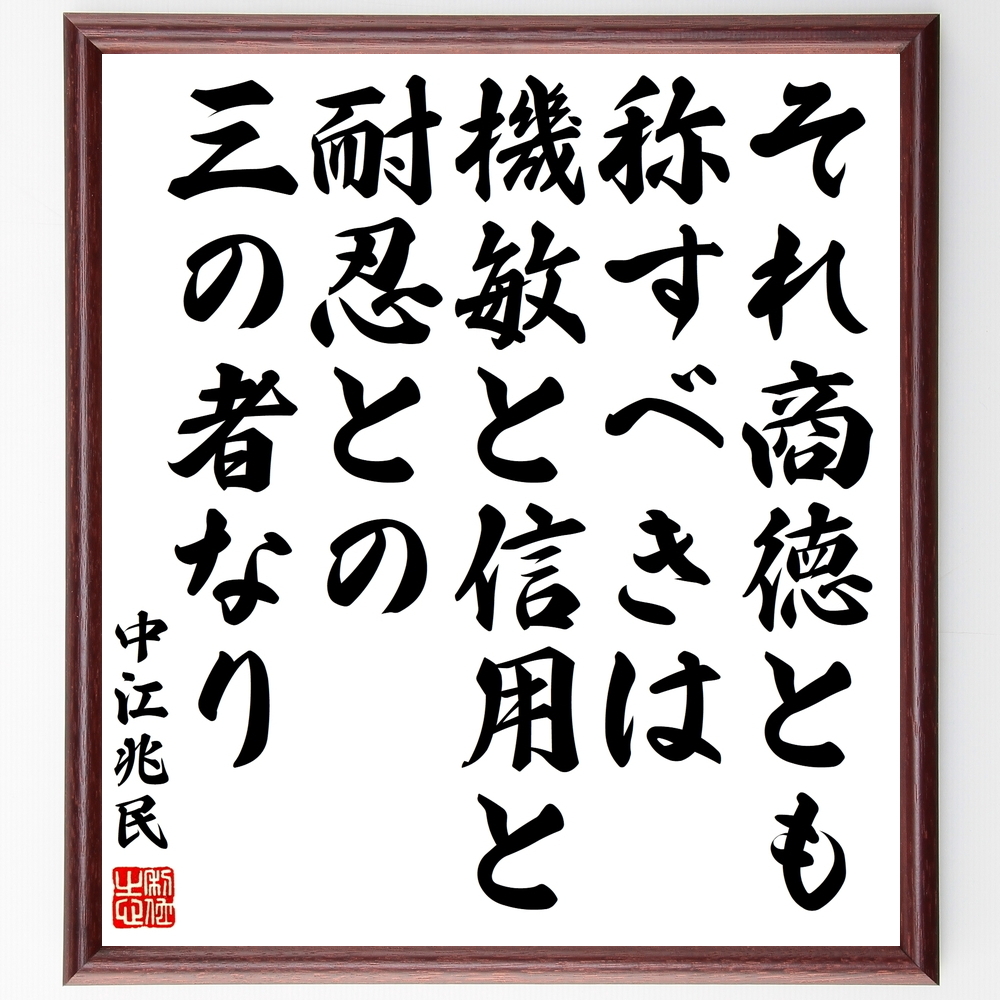 それ商徳とも
称すべきは
機敏と信用と
耐忍との
三の者なり
中江兆民